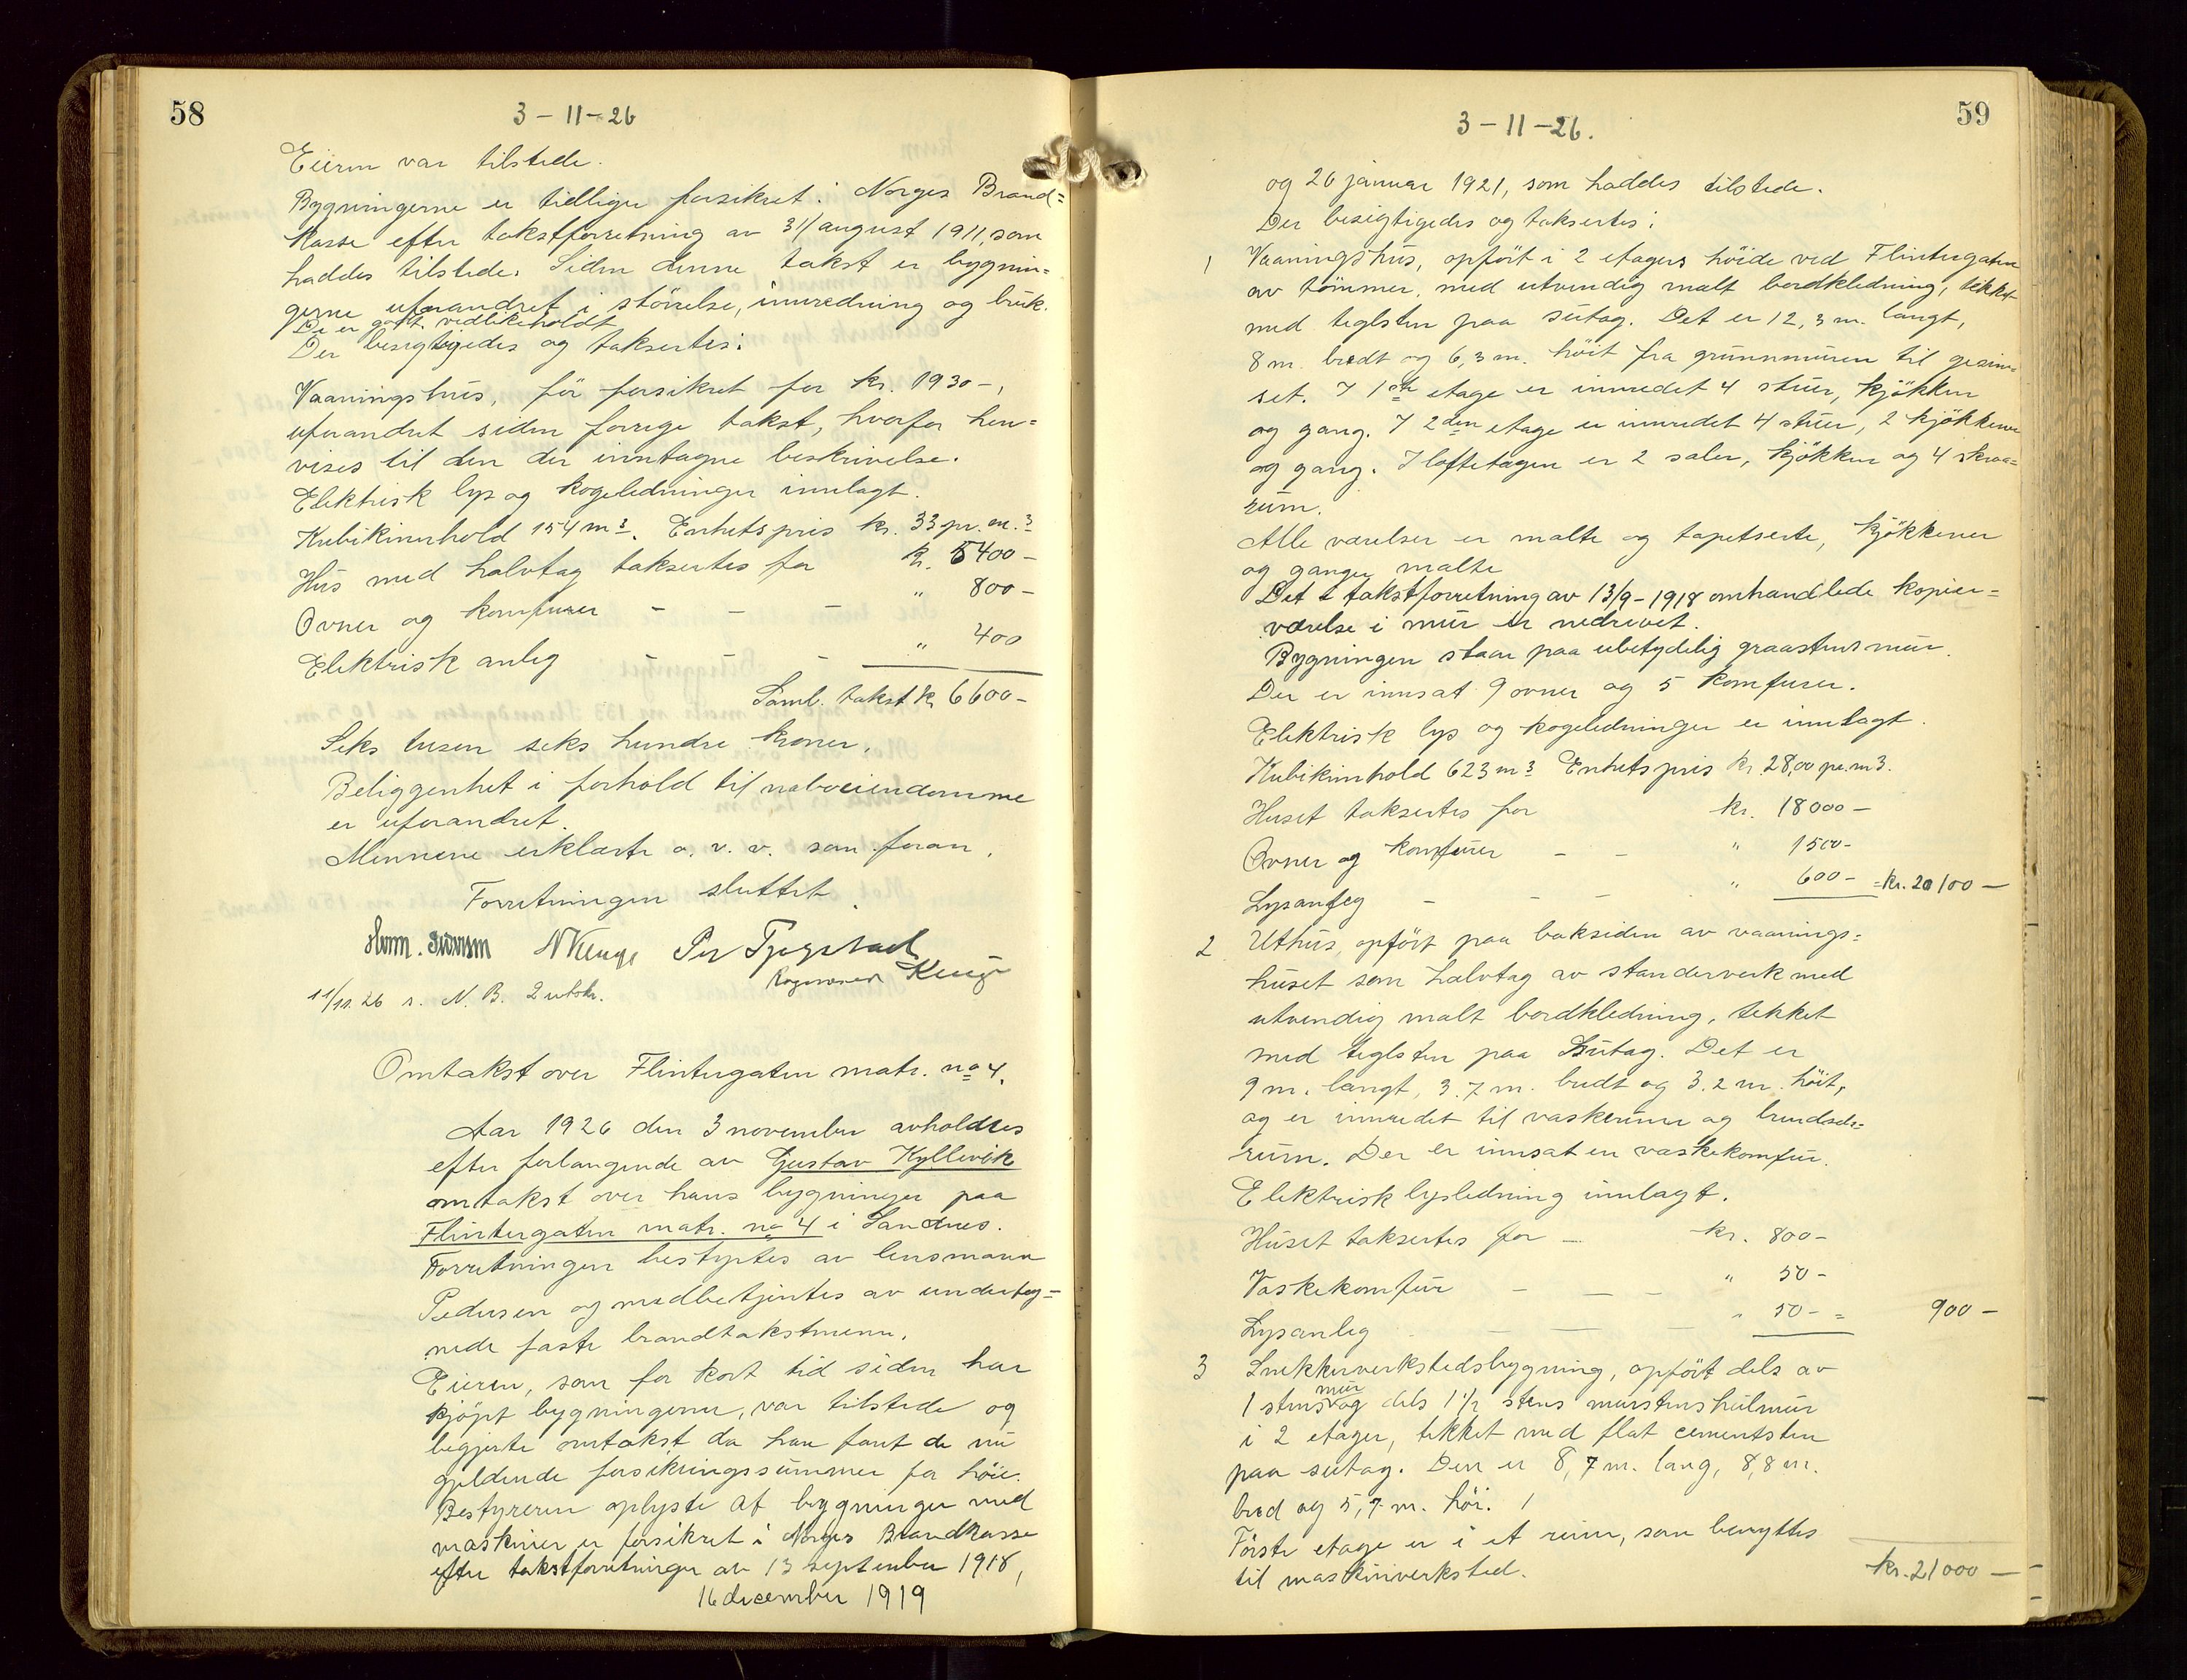 58
3 - 11 - 26
Eieren var tilstede.
Bygningerne er tidliger forsikret i Norges Brand=
kasse efter takstforretning av 31/august 1911, som
haddes tilstede. Siden denne takst er bygnin=
gerne uforandret i størrelse, innredning og bruk.
De er godt vedlikeholdt
Der besigtigedes og taksertes:
Vaaningshus, før forsikret for kr. 1930-,
uforandret siden forrige takst, hvorfor hen=
vises til den der inntagne beskrivelse.
Elektrisk lys og kogeledninger innlagt.
Kubikinnhold 154 m3. Enhetspris kr. 33 pr. m.3
Hus med halvtag taksertes for kr. 5400 -
Ovner og komfurer - - - " 800 -
Elektrisk anleg - - - " 400
Saml. takst kr. 6600 -
Seks tusen seks hundre kroner.
Beliggenhet i forhold til naboeiendomme
er uforandret.
Mennene erklærte o. v. v. som foran.
Forretningen sluttet.
11/11. 26 s. N. B. 2 utskr.
Omtakst over Flintergaten matr. no 4.
Aar 1926 den 3 november avholdtes
efter forlangende av Gustav Kyllevik
omtakst over hans bygninger paa
Flintergaten matr. no 4 i Sandnes.
Forretningen bestyrtes av lensmann
Pedersen og medbetjentes av underteg=
nede faste brandtakstmenn.
Eieren, som for kort tid siden har
kjöpt bygningerne, var tilstede og
begjerte omtakst da han fant de nu
gjeldende forsikringssummer for höie.
Bestyreren oplyste at bygninger med
maskiner er forsikret i Norges Brandkasse
efter takstforretninger av 13 september 1918,
16 december 1919
59
3 - 11 - 26.
og 26 januar 1921, som haddes tilstede.
Der besigtigedes og taksertes:
1 Vaaningshus, opfört i 2 etagers höide ved Flintergaten
av tömmer, med utvendig malt bordkledning, tekket
med teglsten paa sutag. Det er 12,3 m. langt,
8 m. bredt og 6,3 m. höit fra grunnmuren til gesim=
set. I 1ste etage er innredet 4 stuer, kjökken
og gang. I 2den etage er innredet 4 stuer, 2 kjökkener
og gang. I loftetagen er 2 saler, kjökken og 4 skraa=
rum.
Alle værelser er malte og tapetserte, kjökkener
og ganger malte
Det i takstforretning av 13/9 - 1918 omhandlede kopier=
værelse i mur er nedrevet.
Bygningen staar paa ubetydelig graastensmur.
Der er innsat 9 ovner og 5 komfurer.
Elektrisk lys og kogeledninger er innlagt.
Kubikinhold 623 m3 Enhetspris kr. 28,00 pr. m3.
Huset taksertes for kr. 18000 -
Ovner og komfurer - - " 1500-
Lysanleg - - - " 600 - = kr. 20100 -
2 Uthus, opfört paa baksiden av vaanings=
huset som halvtag av standerverk med
utvendig malt bordkledning, tekket
med teglsten paa sutag. Det er
9 m. langt, 3.7 m. bredt og 3.2 m. höit,
og er innredet til vaskerum og brendsels=
rum. Der er innsat en vaskekomfur.
Elektrisk lysledning innlagt.
Huset taksertes for - kr. 800 -
Vaskekomfur - - - " 50 -
Lysanleg - - - " 50 - = 900 -
3 Snekkerverkstedsbygning, opfört dels av
1 stens mur og dels 1 1/2 stens murstenshulmur
i 2 etager, tekket med flat cementsten
paa sutag. Den er 8,7 m. lang, 8,8 m.
bred og 5,7 m. höi.
Förste etage er i et rum, som benyttes
til maskinverksted.
kr. 21000 -